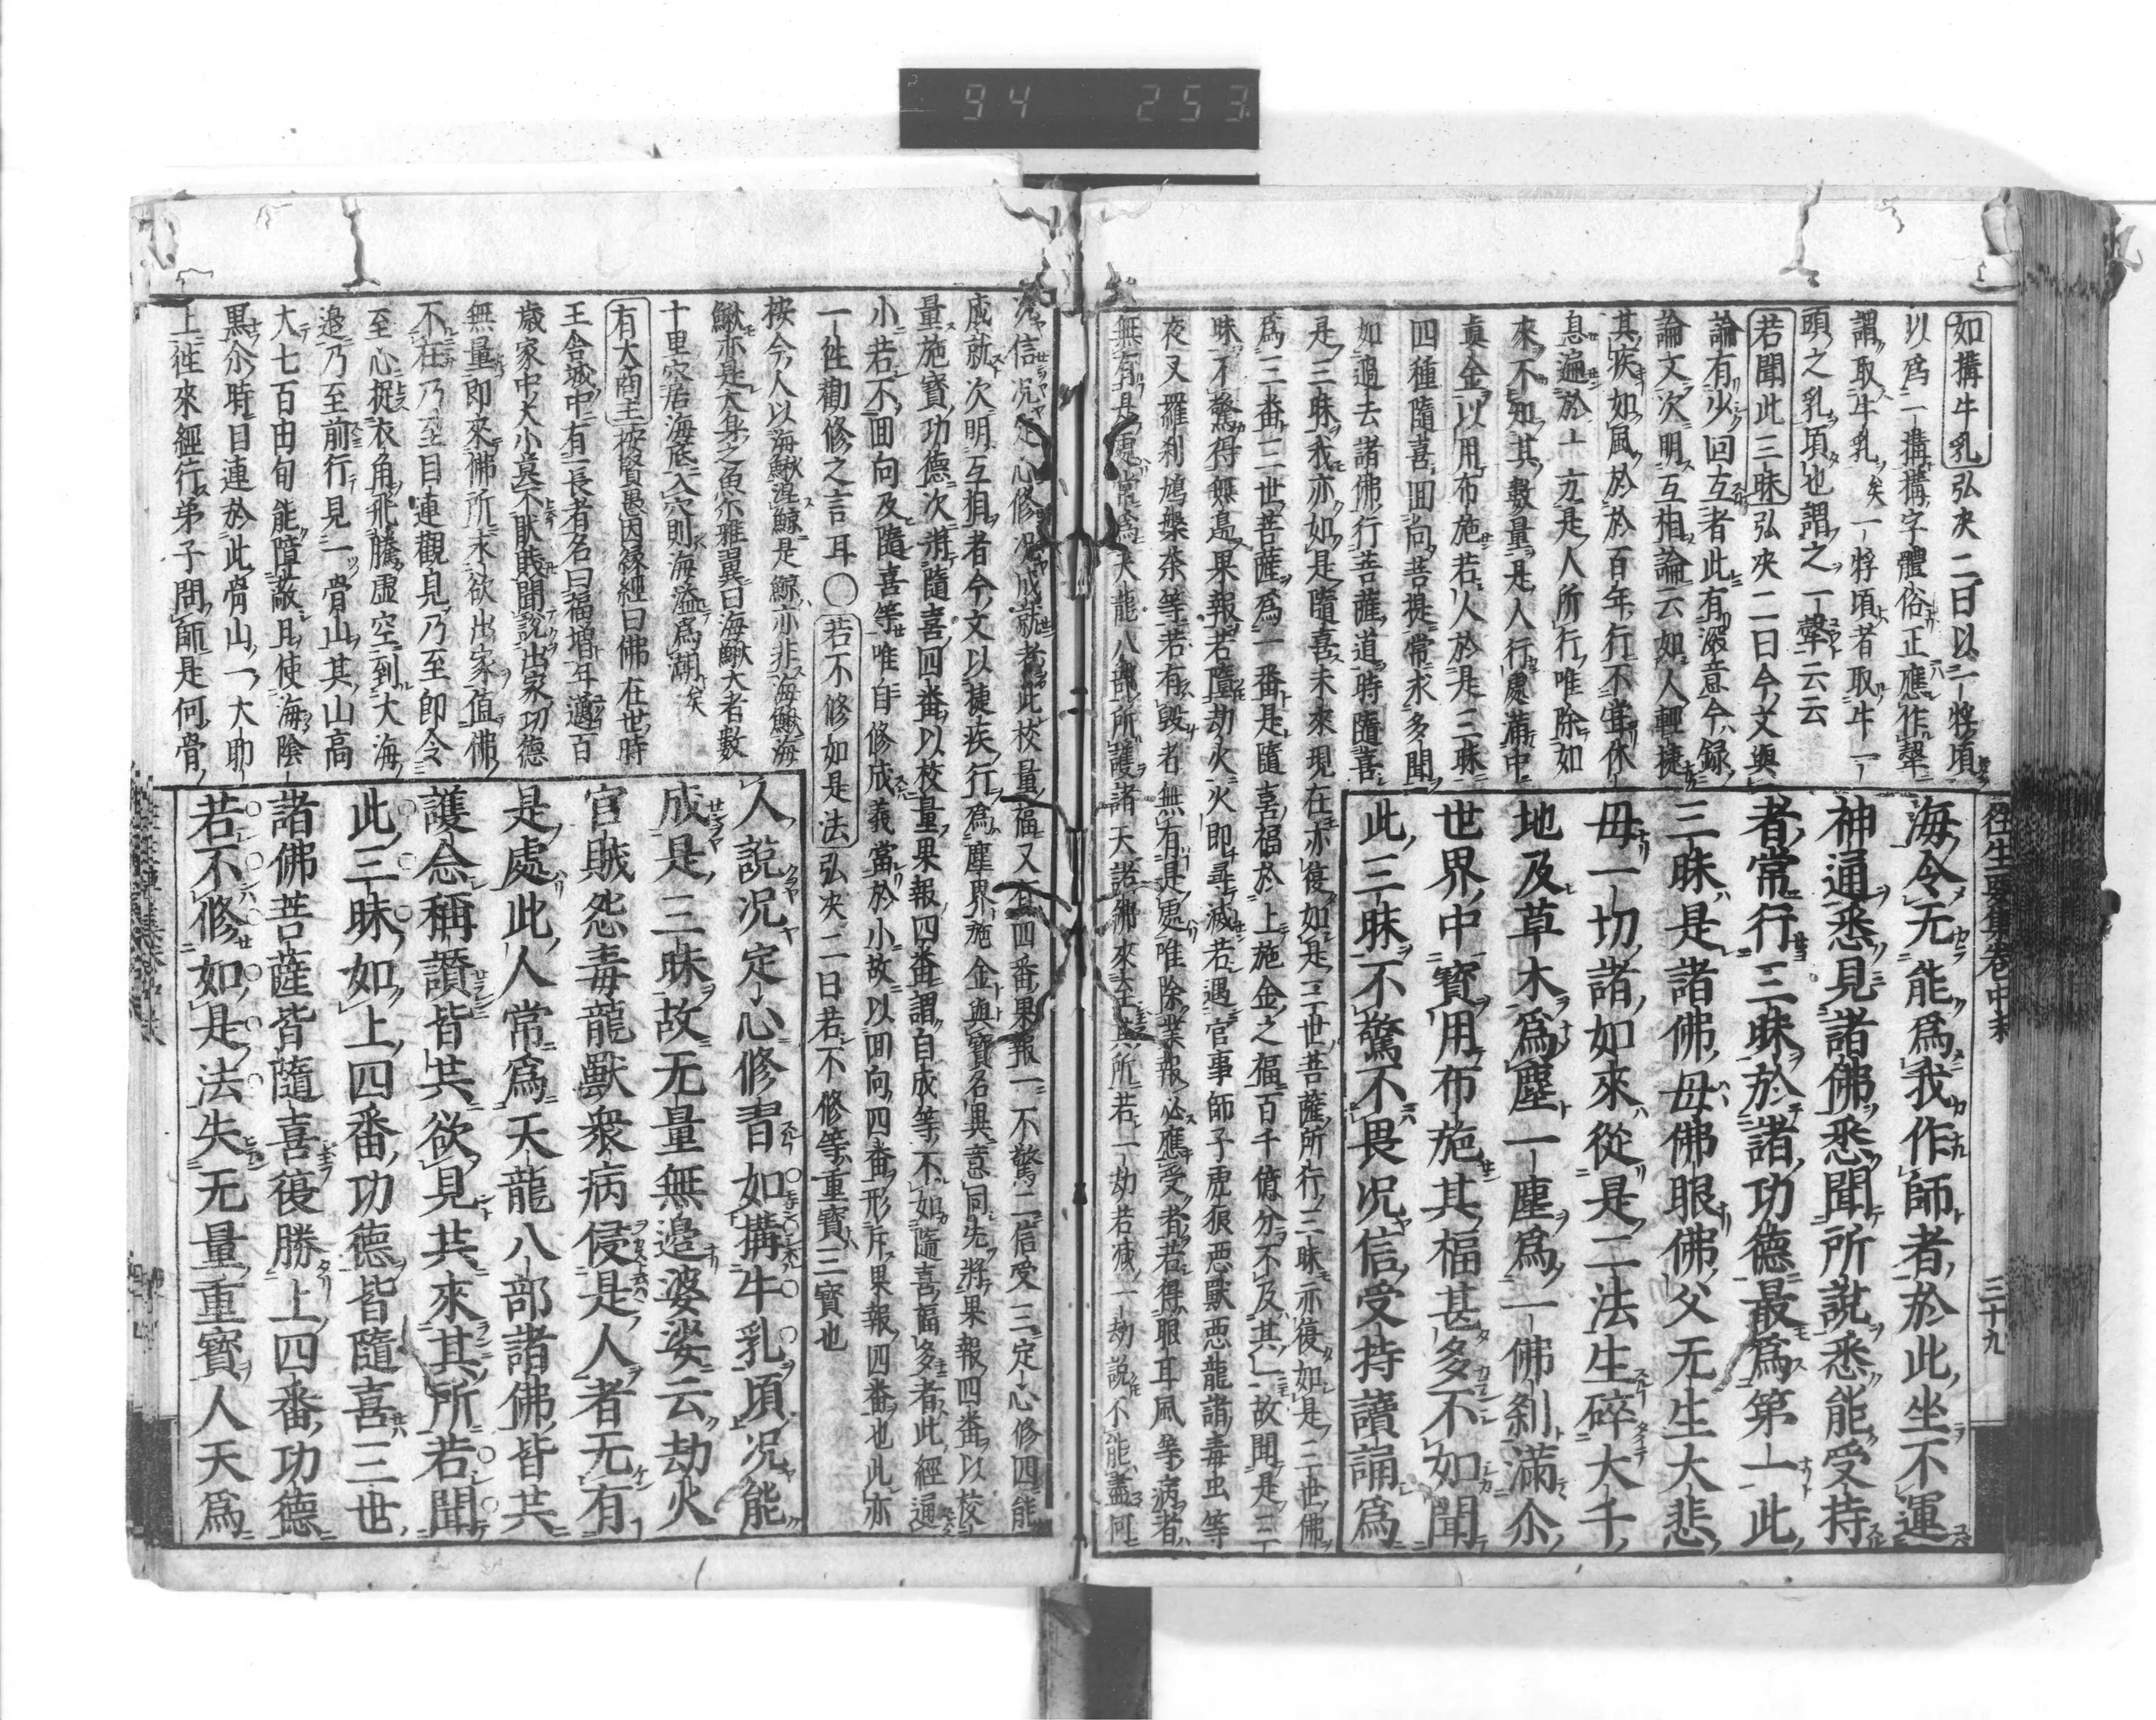 94 253
往生要集卷中末
三十九
如搆牛乳弘决二曰以二一將頃
以爲一搆搆字體俗正應作𤚲
謂取牛乳矣一將頃者取牛一
頭之乳頃也謂之一𤚲云云
若聞此三昧弘决二曰今文與
論有少回互者此有深意今錄
論文次明互相論云如人輕捷
其疾如風於百年行不曾休
息遍於十方是人所行唯除如
來不知其數量是人行處滿中
眞金以用布施若人於是三昧
四種隨喜回向菩提常求多聞
如過去諸佛行菩薩道時隨喜
是三昧我亦如是隨喜未來現在亦復如是三世菩薩所行三昧亦復如是三世佛
爲三番二三世菩薩爲一番是隨喜福於上施金之福百千億分不及其一故聞是三
昧不驚得無邊果報若墮劫火火即尋滅若遇官事師子虎狼惡獸惡龍諸毒虫等
夜叉羅刹鳩槃茶等若有毀者無有是處唯除業報必應受者若得眼耳風等病者
無有是處常爲天龍八部所護諸天諸佛來至其所若一劫若减一劫說不能盡何
海令无能爲我作師者於此坐不運
神通悉見諸佛悉聞所說悉能受持
者常行三昧於諸功德最爲第一此
三昧是諸佛母佛眼佛父无生大悲
母一切諸如來從是二法生碎大千
地及草木爲塵一塵爲一佛刹滿尒
世界中寶用布施其福甚多不如聞
此三昧不驚不畏况信受持讀誦爲
况信况定心修况成就者此校量福又有四番果報一不驚二信受三定心修四能
成就次明互相者今文以徤疾行爲塵界施金與寶名異意同先將果報四番以校
量施寶功德次將隨喜四番以校量果報四番謂自成等不如隨喜福多者此經通
小若不回向及隨喜等唯自修成義當於小故以回向四番形斥果報四番也此亦
一徃勸修之言耳〇若不修如是法弘决二曰若不修等重寶三寶也
按今人以海鰍混鯨是鯨亦非海鰍海
鰍亦是大身之魚尓雅翼曰海鰍大者數
十里穴居海底入穴則海溢爲潮矣
有大商主按賢愚因緣經曰佛在世時
王舍城中有長者名曰福增年過百
歲家中大小莫不猒賤聞說出家功德
無量即來佛所求欲出家值佛
不在乃至目連觀見乃至即令
至心捉衣角飛騰虚空到大海
邊乃至前行見一骨山其山高
大七百由旬能障蔽日使海陰
黑尒時目連於此骨山一大助
上徃來經行弟子問師是何骨
人說况定心修習如搆牛乳頃况能
成是三昧故无量無邊婆娑云劫火
官賊怨毒龍獸衆病侵是人者无有
是處此人常爲天龍八部諸佛皆共
護念稱讚皆共欲見共來其所若聞
此三昧如上四番功德皆隨喜三世
諸佛菩薩皆隨喜復勝上四番功德
若不修如是法失无量重寶人天爲